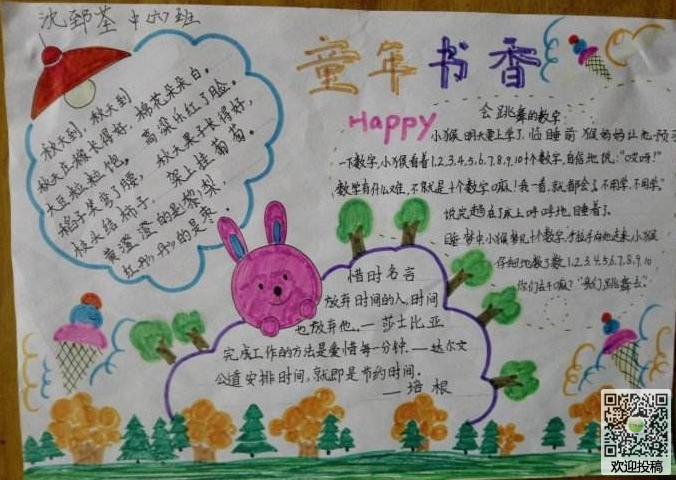 沈郅荃 中(六)班
童年书香
Happy
秋天到，秋天到
秋天庄稼长得好，棉花朵朵白。
大豆粒粒饱，高粱乐红了脸。
稻子笑弯了腰，秋天果子长得好，
枝头结柿子，架上挂葡萄。
黄澄澄的是黎梨，
红彤彤的是枣。
会跳舞的数字
小猴明天要上学了，临睡前猴妈妈让他预习
一下数字，小猴看着1.2.3.4.5.6.7.8.9.10十个数字，自信地说："哎呀！
数学有什么难，不就是十个数字嘛！我一看，就都会了，不用学，不用学。"
说完趟在了床上呼呼地睡着了。
睡梦中，小猴梦见十个数字，手拉手向他走来，小猴
仔细地数了数1.2.3.4.5.6.7.8.9.10
你们去干嘛？"我们跳舞去。"
惜时名言
放弃时间的人，时间
也放弃他。—莎士比亚
完成工作的方法是爱惜每一分钟。—达尔文
公道安排时间，就即是节约时间。
—培根
欢迎投稿